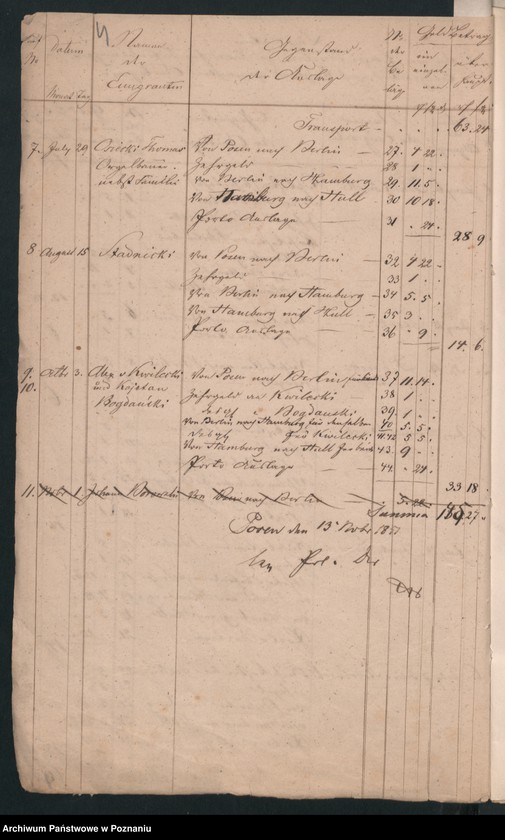 Datum
Namen
der
Emigranten
Gegenstand
der Auslage
No
der
Be
läg
Geldbetrag
ein
einzel
nen
über
haupt
Monat Tag
Transport - . . . 63. 24
7. July 29 Thomas Von Posen nach Berlin — 27. 4 22 .
Orgelbauer Zehrgeld — 28 1 . .
nebst Familie von Berlin nach Hamburg 29. 11. 5 .
Von Hamburg nach Hull 30 10 18 .
Porto Auslage 31 . 24 .
28 9
8 August 15 Von Posen nach Berlin — 32 4 22 .
Zehrgeld — 33 1 . .
Von Berlin nach Hamburg — 34 5. 5 .
Von Hamburg nach Hull — 35 3 . .
Porto Auslage 36 . 9 .
14. 6.
9. Octbr 3. Alex v Kwilecki Von Posen nach Berlin 37 11. 14 .
10. und Kajetan Zehrgeld an Kwilecki — 38 1 . .
Bogdański Bogdanski 39 1 . .
Von Berlin nach Hamburg für denselben 40 5. 5 .
für Kwilecki 41.42 5 5 .
Von Hamburg nach Hull 43. 9 . .
Porto Auslage — 44 . 24.
33 18 .
11. Nbr 1 Johann von Posen nach Berlin
Summa 27 .
Posen den 13 Nvbr. 1851